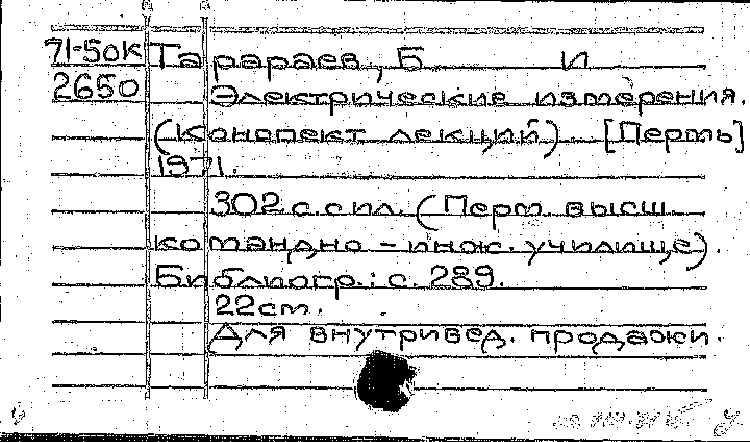 71-50К Тарараев, Б И
2650 Электрические измерения.
(Конспект лекций). [Пермь]
1971.
302 с. с ил. (Перм. высш.
командно-инж. училище).
Библиогр.: с. 289.
22 см.
Для внутривед. продажи.